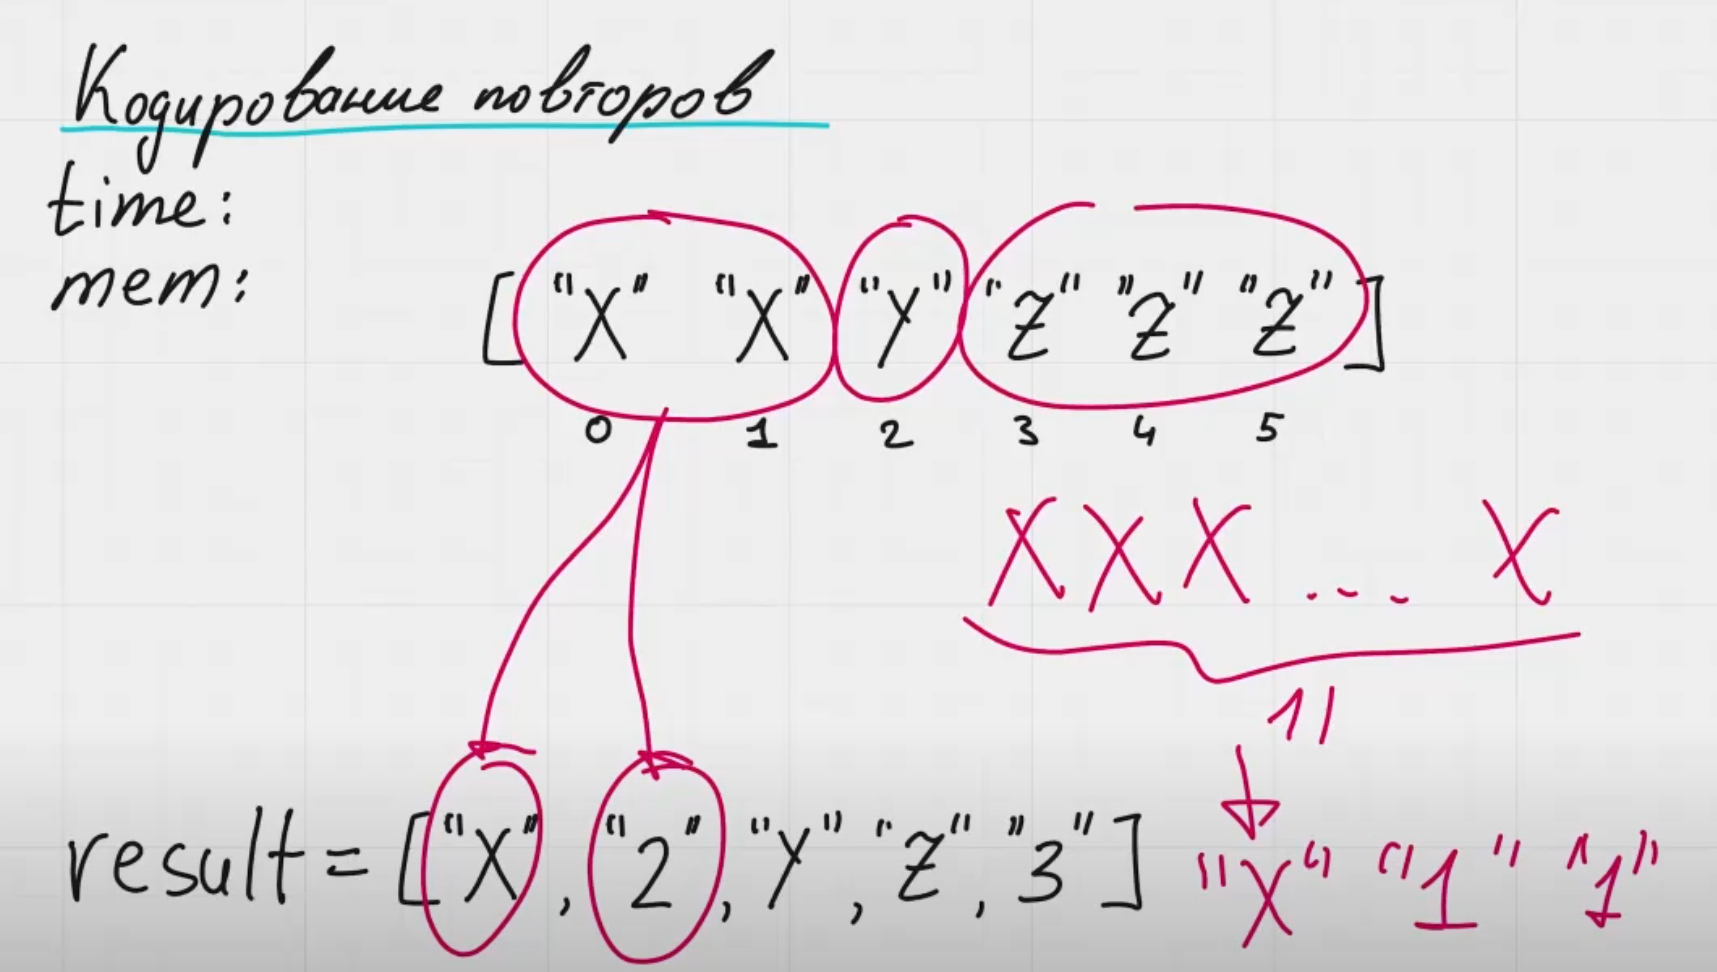 Кодирование повторов
time:
mem:
["X" "X" "Y" "Z" "Z" "Z"]
0 1 2 3 4 5
X X X ... X
11
result = ["X", "2", "Y", "Z", "3"]
"X" "1" "1"